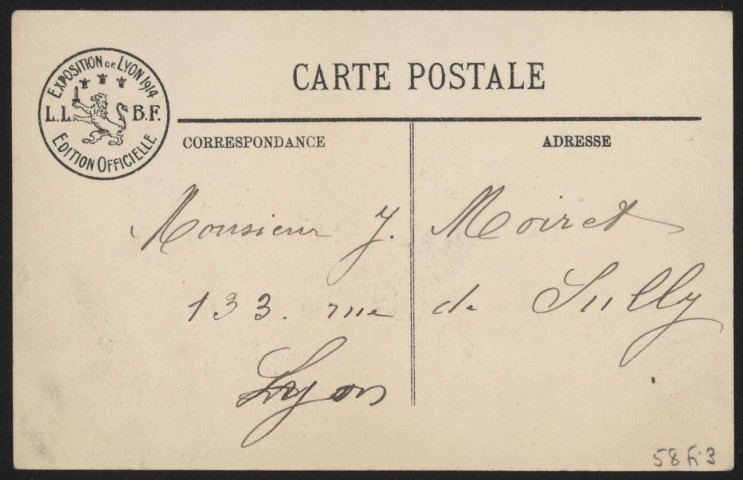 EXPOSITION DE LYON 1914
L.L. B.F.
EDITION OFFICIELLE
CARTE POSTALE
CORRESPONDANCE ADRESSE
Monsieur J. Moiret
133. rue de Sully
Lyon
58 fi 3